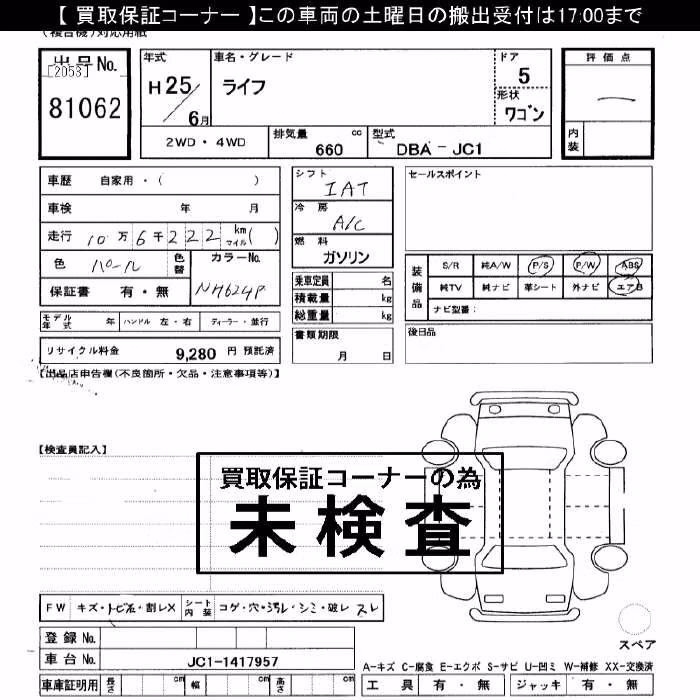 【 買取保証コーナー 】この車両の土曜日の搬出受付は17:00まで
(複合機)対応用紙
出品No.
[2053]
81062
年式
H25/6月
車名・グレード
ライフ
ドア
5
形状
ワゴン
評価点
—
内装
2WD・4WD
排気量 660 cc
型式 DBA - JC1
車歴 自家用・( )
車検 年 月
走行 10万6千222 km マイル( )
色 パール
色替
カラーNo.
NH624P
保証書 有・無
シフト
IAT
冷房
A/C
燃料
ガソリン
乗車定員 名
積載量 kg
総重量 kg
書類期限
月 日
セールスポイント
装備品
S/R 純A/W P/S P/W ABS
純TV 純ナビ 革シート 外ナビ エアB
ナビ型番:
後日品
モデル年式 年 ハンドル 左・右 ディーラー・並行
リサイクル料金 9,280 円 預託済
【出品店申告欄(不良箇所・欠品・注意事項等)】
【検査員記入】
買取保証コーナーの為
未検査
FW キズ・トビ石・割レX
シート内装 コゲ・穴・汚レ・シミ・破レ スレ
登録No.
車台No. JC1-1417957
車庫証明用 長さ cm 幅 cm 高さ cm
スペア
A-キズ C-腐食 E-エクボ S-サビ U-凹ミ W-補修 XX-交換済
工具 有・無 ジャッキ 有・無